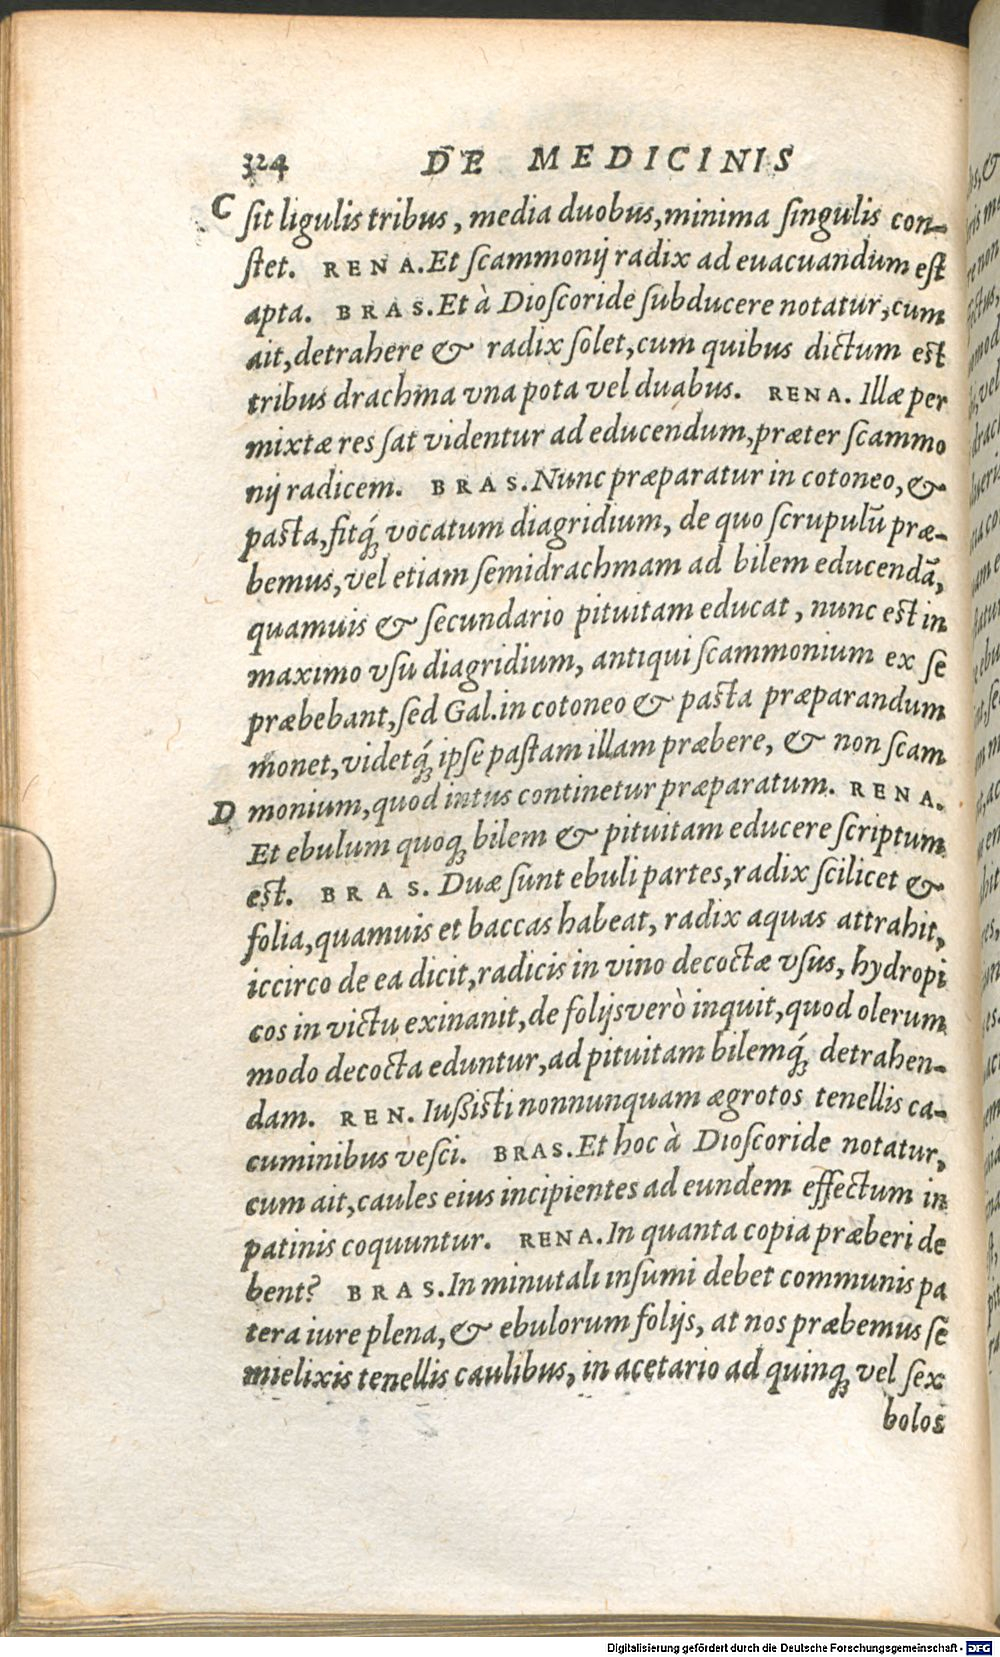 324 DE MEDICINIS
C ſit ligulis tribus, media duobus, minima ſingulis con-
ſtet. RENA. Et ſcammonij radix ad euacuandum eſt
apta. BRAS. Et à Dioſcoride ſubducere notatur, cum
ait, detrahere & radix ſolet, cum quibus dictum eſt
tribus drachma vna pota vel duabus. RENA. Illæ per
mixtæ res ſat videntur ad educendum, præter ſcammo
nij radicem. BRAS. Nunc præparatur in cotoneo, &
paſta, fitq́; vocatum diagridium, de quo ſcrupulū præ-
bemus, vel etiam ſemidrachmam ad bilem educendā,
quamuis & ſecundario pituitam educat, nunc eſt in
maximo vſu diagridium, antiqui ſcammonium ex ſe
præbebant, ſed Gal. in cotoneo & paſta præparandum
monet, videtq́; ipſe paſtam illam præbere, & non ſcam
D monium, quod intus continetur præparatum. RENA.
Et ebulum quoq; bilem & pituitam educere ſcriptum
eſt. BRAS. Duæ ſunt ebuli partes, radix ſcilicet &
folia, quamuis et baccas habeat, radix aquas attrahit,
iccirco de ea dicit, radicis in vino decoctæ vſus, hydropi
cos in victu exinanit, de folijs verò inquit, quod olerum
modo decocta eduntur, ad pituitam bilemq́; detrahen-
dam. REN. Iußiſti nonnunquam ægrotos tenellis ca-
cuminibus veſci. BRAS. Et hoc à Dioſcoride notatur,
cum ait, caules eius incipientes ad eundem effectum in
patinis coquuntur. RENA. In quanta copia præberi de
bent? BRAS. In minutali inſumi debet communis pa
tera iure plena, & ebulorum folijs, at nos præbemus ſe
mielixis tenellis caulibus, in acetario ad quinq; vel ſex
bolos
Digitalisierung gefördert durch die Deutsche Forschungsgemeinschaft - DFG